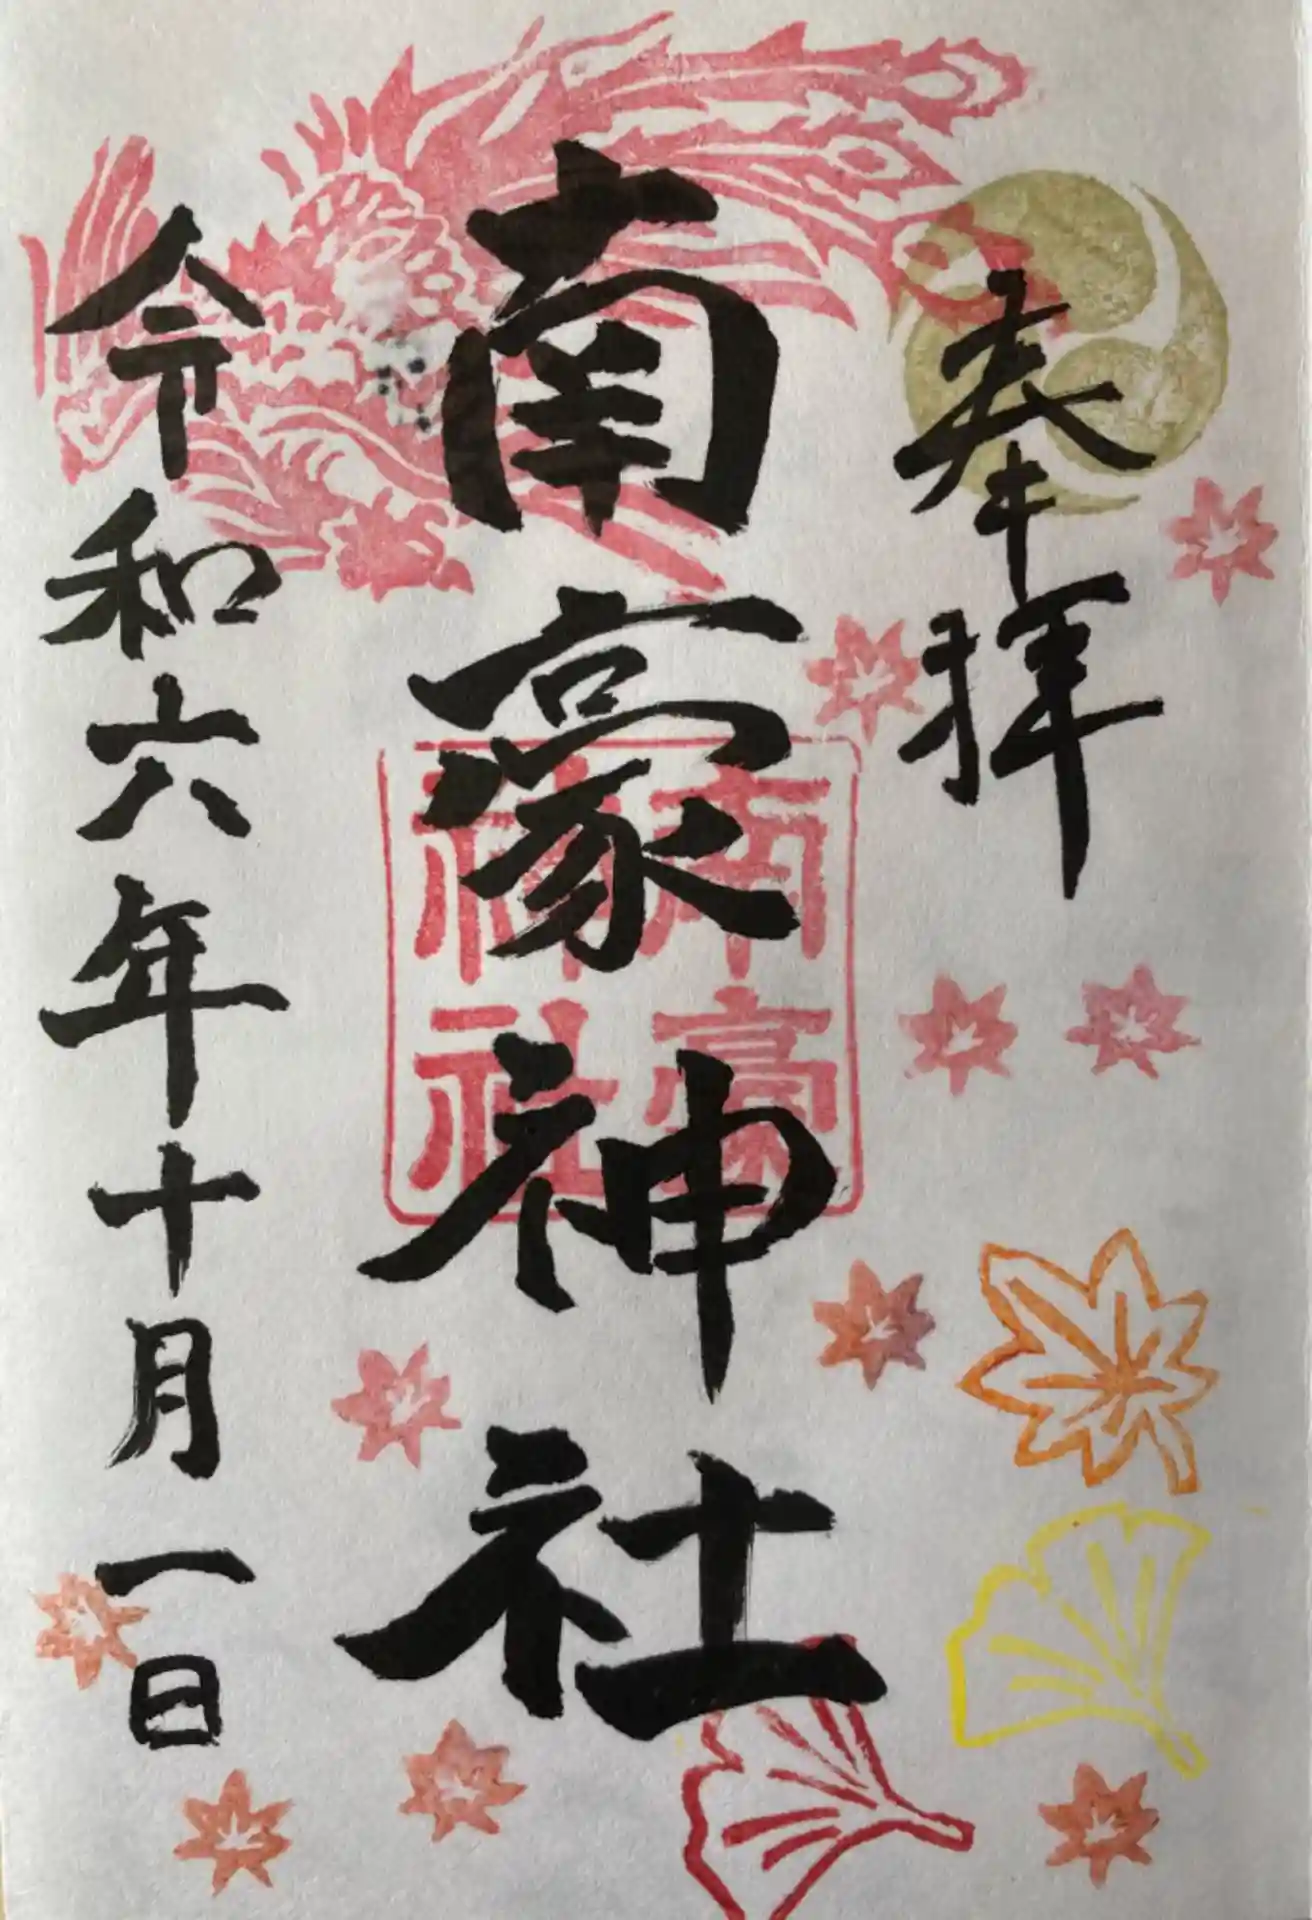 奉拝
南豪神社
南豪
神社
令和六年十月一日